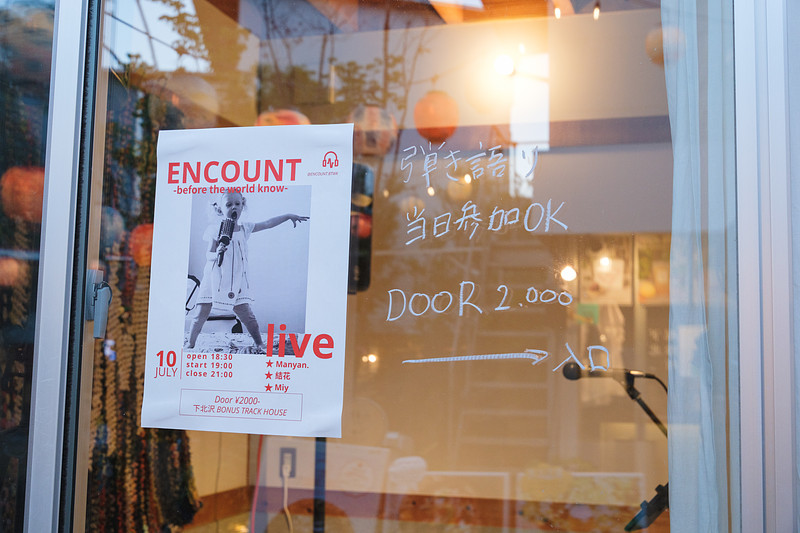 ENCOUNT
-before the world know-
live
10
JULY
open 18:30
start 19:00
close 21:00
★ Manyan.
★ 結花
★ Miy
Door ¥2000-
下北沢 BONUS TRACK HOUSE
弾き語り
当日参加OK
DOOR 2.000
入口